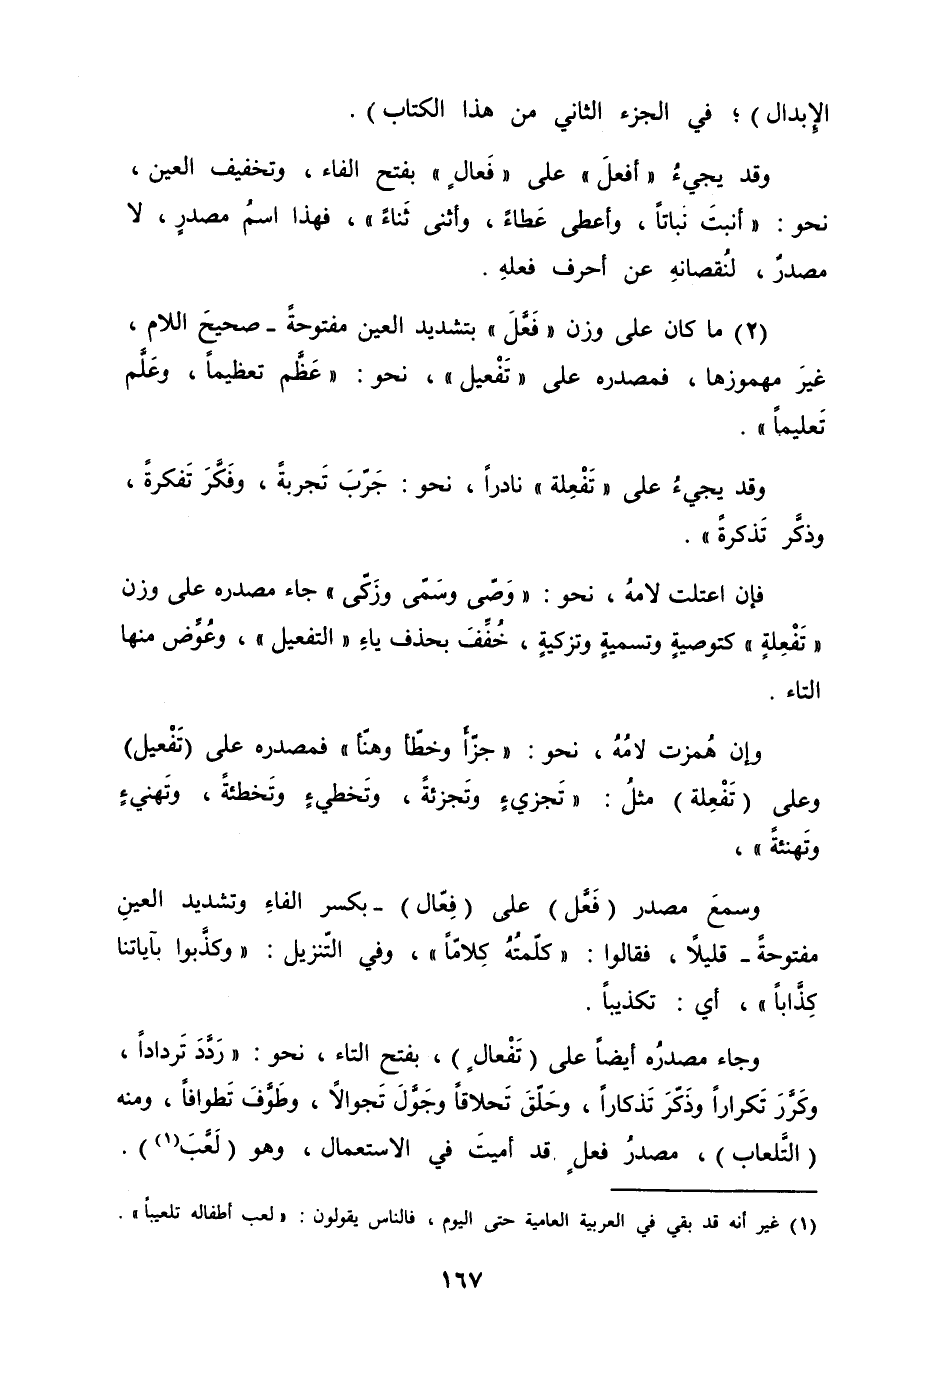 الإِبدال) ؛ في الجزء الثاني من هذا الكتاب) .
وقد يجيءُ « أفعلَ» على « فَعالٍ » بفتح الفاء ، وتخفيف العين ،
نحو : « أنبتَ نَباتاً ، وأعطى عَطاءً ، وأثنى ثَناءً » ، فهذا اسمُ مصدرٍ ، لا
مصدرٌ ، لنُقصانهِ عن أحرف فعلهِ .
(٢) ما كان على وزن « فَعَّلَ » بتشديد العين مفتوحةً ـ صحيحَ اللام ،
غيرَ مهموزها ، فمصدره على « تَفْعيل» ، نحو : « عَظَّم تعظيماً ، وعَلَّم
تَعليماً » .
وقد يجيءُ على « تَفْعِلة » نادراً ، نحو : جَرّبَ تَجربةً ، وفَكَّرَ تَفكرةً ،
وذكَّر تَذكرةً » .
فإن اعتلت لامهُ ، نحو : « وَصّى وسَمّى وزَكّى » جاء مصدره على وزن
« تَفْعِلةٍ » كتوصيةٍ وتسميةٍ وتزكيةٍ ، خُفِّفَ بحذف ياءِ « التفعيل » ، وعُوِّض منها
التاء .
وإن هُمزت لامُهُ ، نحو : « جزّأَ وخطّأ وهنّأ » فمصدره على (تَفْعيل)
وعلى ( تَفْعِلة ) مثلُ : « تَجزيءٍ وتَجزئةً ، وتَخطيءٍ وتَخطئةً ، وتَهنيءٍ
وتَهنئةً » ،
وسمعَ مصدر ( فَعَّل ) على ( فِعّال ) ـ بكسر الفاءِ وتشديد العينِ
مفتوحةً ـ قليلًا ، فقالوا : « كلّمتُهُ كِلامّاً » ، وفي التّنزيل : « وكذَّبوا بآياتنا
كِذَّاباً » ، أي : تكذيباً .
وجاء مصدرُه أيضاً على ( تَفْعالٍ ) ، بفتح التاء ، نحو : « رَدَّدَ تَرداداً ،
وكَرَّرَ تَكراراً وذَكّرَ تَذكاراً ، وحَلّقَ تَحلاقاً وجَوَّلَ تَجوالًا ، وطَوَّفَ تَطوافاً ، ومنه
( التَّلعاب ) ، مصدرُ فعلٍ قد أميتَ في الاستعمال ، وهو ( لَعَّبَ(١) ) .
(١) غير أنه قد بقي في العربية العامية حتى اليوم ، فالناس يقولون : « لعب أطفاله تلعيباً » .
١٦٧